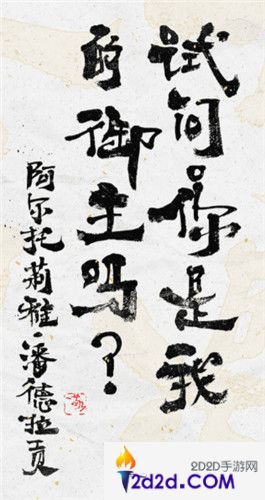 试问。你是我
的御主吗？
阿尔托莉雅·潘德拉贡
2D2D手游网
2d2d.com